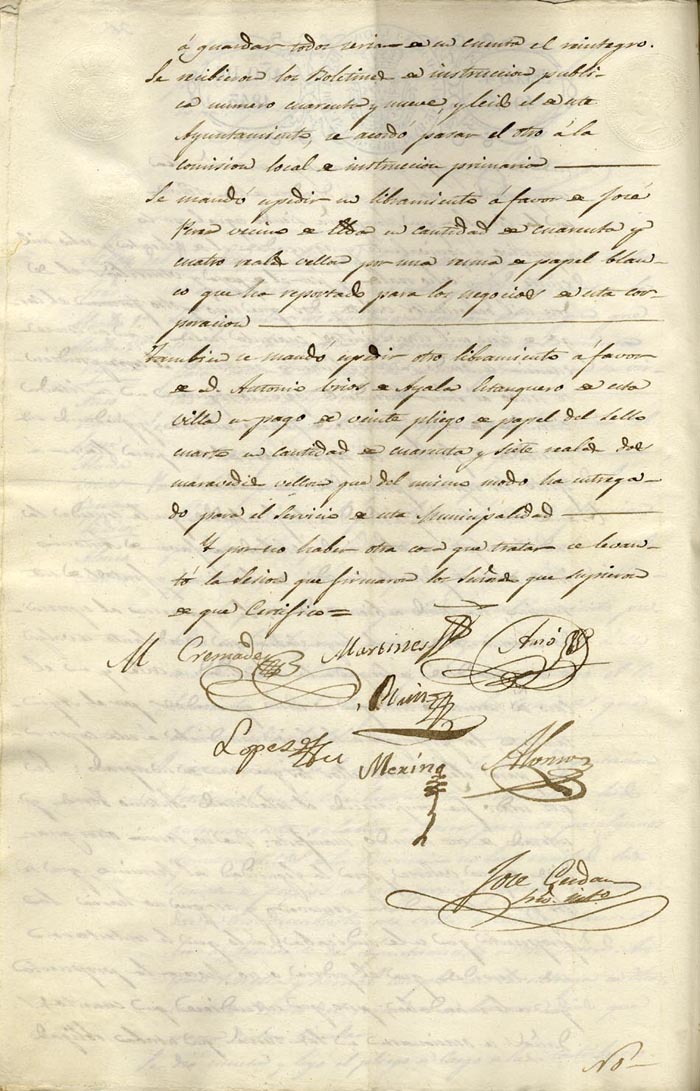 á guardar todos seria de su cuenta el reintegro.
Se recibieron los Boletines de instruccion publi-
ca numero cuarenta y nueve, y leido el de este
Ayuntamiento, se acordó pasar el otro á la
comision local de instruccion primaria
Se mandó espedir un libramiento á favor de José
vecino de Elda en cantidad de cuarenta y
cuatro reales vellon por una resma de papel blan-
co que ha reportado para los negocios de esta cor-
poracion
Tambien se mandó espedir otro libramiento á favor
de D. Antonio de Ayala Estanquero de esta
villa en pago de veinte pliegos de papel del Sello
cuarto en cantidad de cuarenta y siete reales dos
maravedis vellon que del mismo modo ha entrega-
do para el servicio de esta Municipalidad
Y por no haber otra cosa que tratar se levan-
tó la Sesion que firmaron los Señores que supieron
de que Certifico=
M Cremades Martines Amó
Lopez
Merino Alonso
Jose